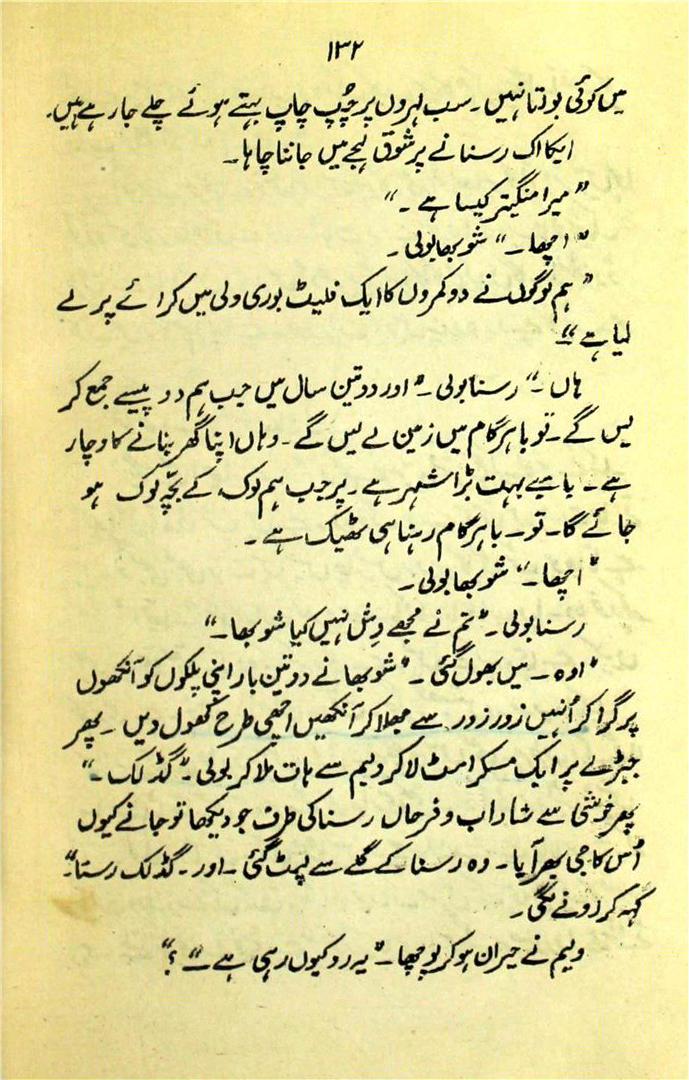 ۱۳۲
میں کوئی بولتا نہیں۔ سب لہروں پر چُپ چاپ بہتے ہوئے چلے جا رہے ہیں۔
ایکا اک رسنا نے پر شوق لہجے میں جاننا چاہا۔
”میرا منگیتر کیسا ہے۔“
”اچھا۔“ شوبھا بولی۔
”ہم لوگوں نے دو کمروں کا ایک فلیٹ بوری ولی میں کرائے پر لے
لیا ہے“۔
ہاں۔“ رسنا بولی۔ ”اور دو تین سال میں جب ہم دو پیسے جمع کر
لیں گے۔ تو باہر گام میں زمین لے لیں گے۔ وہاں اپنا گھر بنانے کا وچار
ہے۔ بامبے بہت بڑا شہر ہے۔ پر جب ہم لوگ کے بچّہ لوگ ہو
جائے گا۔ تو۔ باہر گام رہنا ہی ٹھیک ہے۔
”اچھا۔“ شوبھا بولی۔
رسنا بولی۔ ”تم نے مجھے وِش نہیں کیا شوبھا۔“
”اوہ۔ میں بھول گئی۔“ شوبھا نے دو تین بار اپنی پلکوں کو آنکھوں
پر گرا کر اُنہیں زور زور سے جھلا کر آنکھیں اچھی طرح کھول دیں۔ پھر
جبڑے پر ایک مسکراہٹ لا کر ولیم سے ہات ملا کر بولی۔ ”گڈ لک۔“
پھر خوشی سے شاداب و فرحاں رسنا کی طرف جو دیکھا تو جانے کیوں
اُس کا جی بھر آیا۔ وہ رسنا کے گلے سے لپٹ گئی۔ اور۔ گڈ لک رسنا“۔
کہہ کر رونے لگی۔
ولیم نے حیران ہو کر پوچھا۔ ”یہ رو کیوں رہی ہے۔“ ؟“